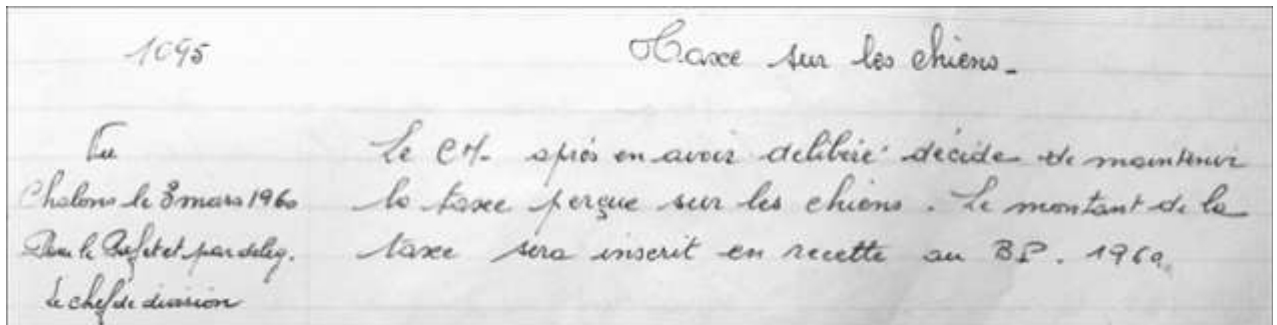 1095
Taxe sur les chiens_
Vu
Chalons le 8 mars 1960
Pour le Préfet et par délég.
Le chef de division
Le CM. après en avoir délibéré décide de maintenir
la taxe perçue sur les chiens. Le montant de la
taxe sera inscrit en recette au BP. 1960.